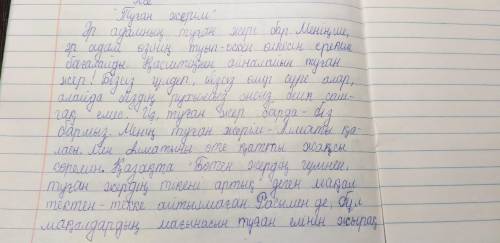 "Туған жерім"
Әр адамның туған жері бар. Меніңше,
әр адам өзінің туып-өскен өлкесін ерекше
бағалайды. Қасиетіңнен айналайын туған
жер! Бізсіз гүлдеп, бізсіз өмір сүре алар,
алайда біздің рухымыз онсыз биік
емес. Иә, туған жер барда - біз
бармыз. Менің туған жерім - Алматы қа-
ласы. Мен Алматыны өте қатты жақсы
көремін. Қазақта "Бөтен жердің гүлінен,
туған жердің тікені артық деген мақал
тектен-текке айтылмаған. Расымен де, бұл
мақалдардың мағынасын туған елінен жырақ